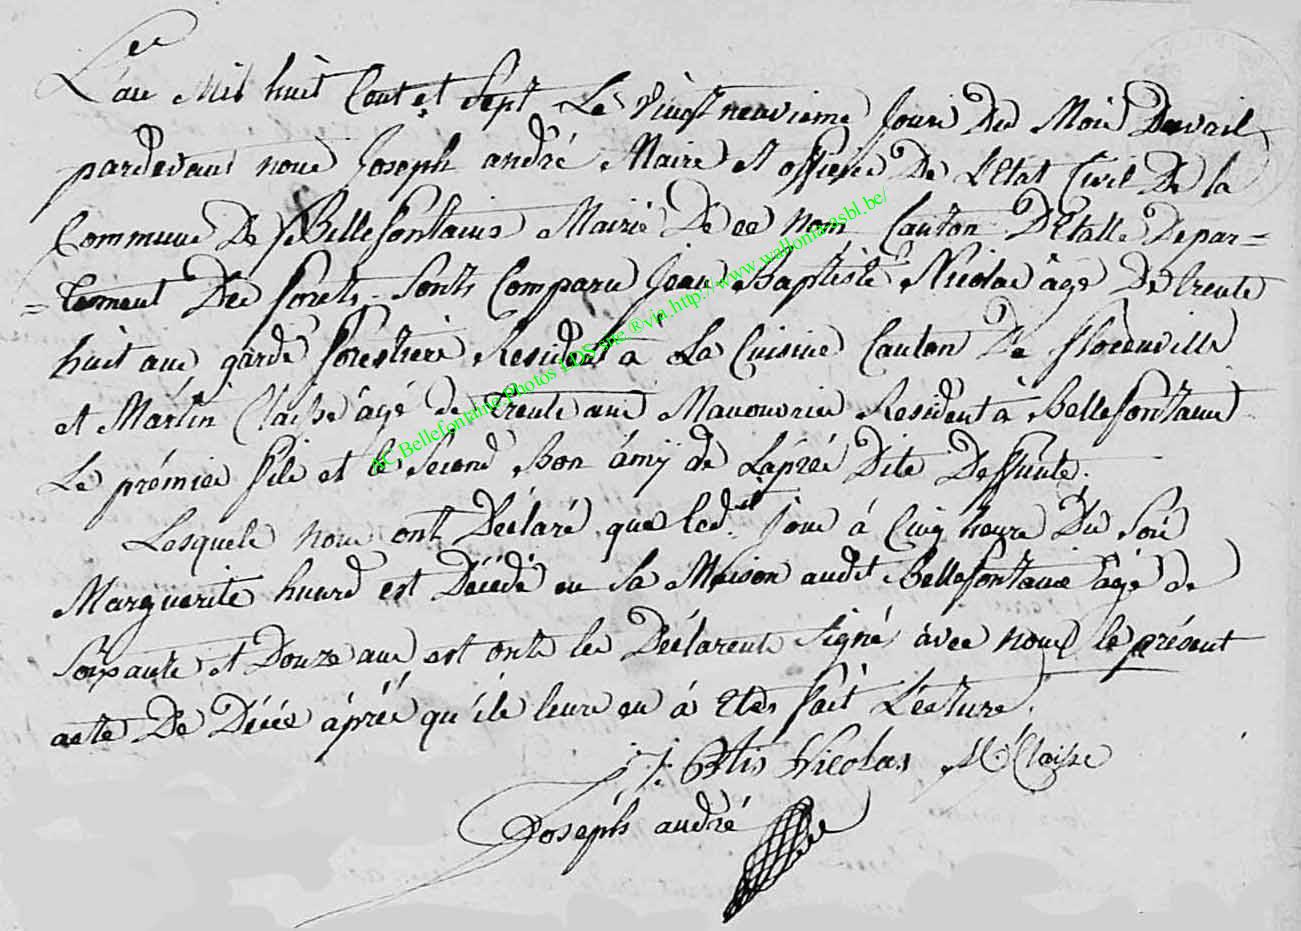 L'an Mil huit Cent et Sept Le Vingt neuvieme Jour Du Mois Davril
pardevant nous Joseph andré Maire et officier De L'Etat Civil De la
Commune De Bellefontaine Mairie De ce nom Canton D'Etalle Depar=
=tement Des forets Sonts Comparu Jean Baptiste Nicolas âgé De trente
huit ans garde forestiere Resident à La Cuisine Canton De florenville
et Martin Claisse âgé de trente ans Manouvrier Resident à Bellefontaine
Le prémier fils et le Second Bon ámij de L'aprés Dite Deffunte.
Lesquels nous ont Déclaré que led.it Jour à Cinq heure Du Soir
Marguerite huard est Décédé en Sa Maison audit Bellefontaine âgé de
Soixante et Douze ans est onts les Déclarents Signé avec nous le présent
acte De Décés áprés qu'ils leurs en à Etes fait Lecture.
J: Btis Nicolas M: Claisse
Joseph andré
AC Bellefontaine Photos LDS site ®via http://www.wallonia-asbl.be/